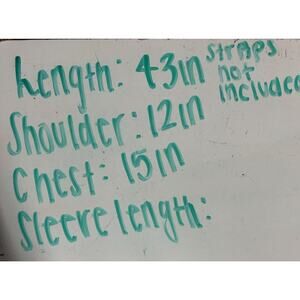 Length: 43in straps not included
Shoulder: 12in
Chest: 15in
Sleeve length: